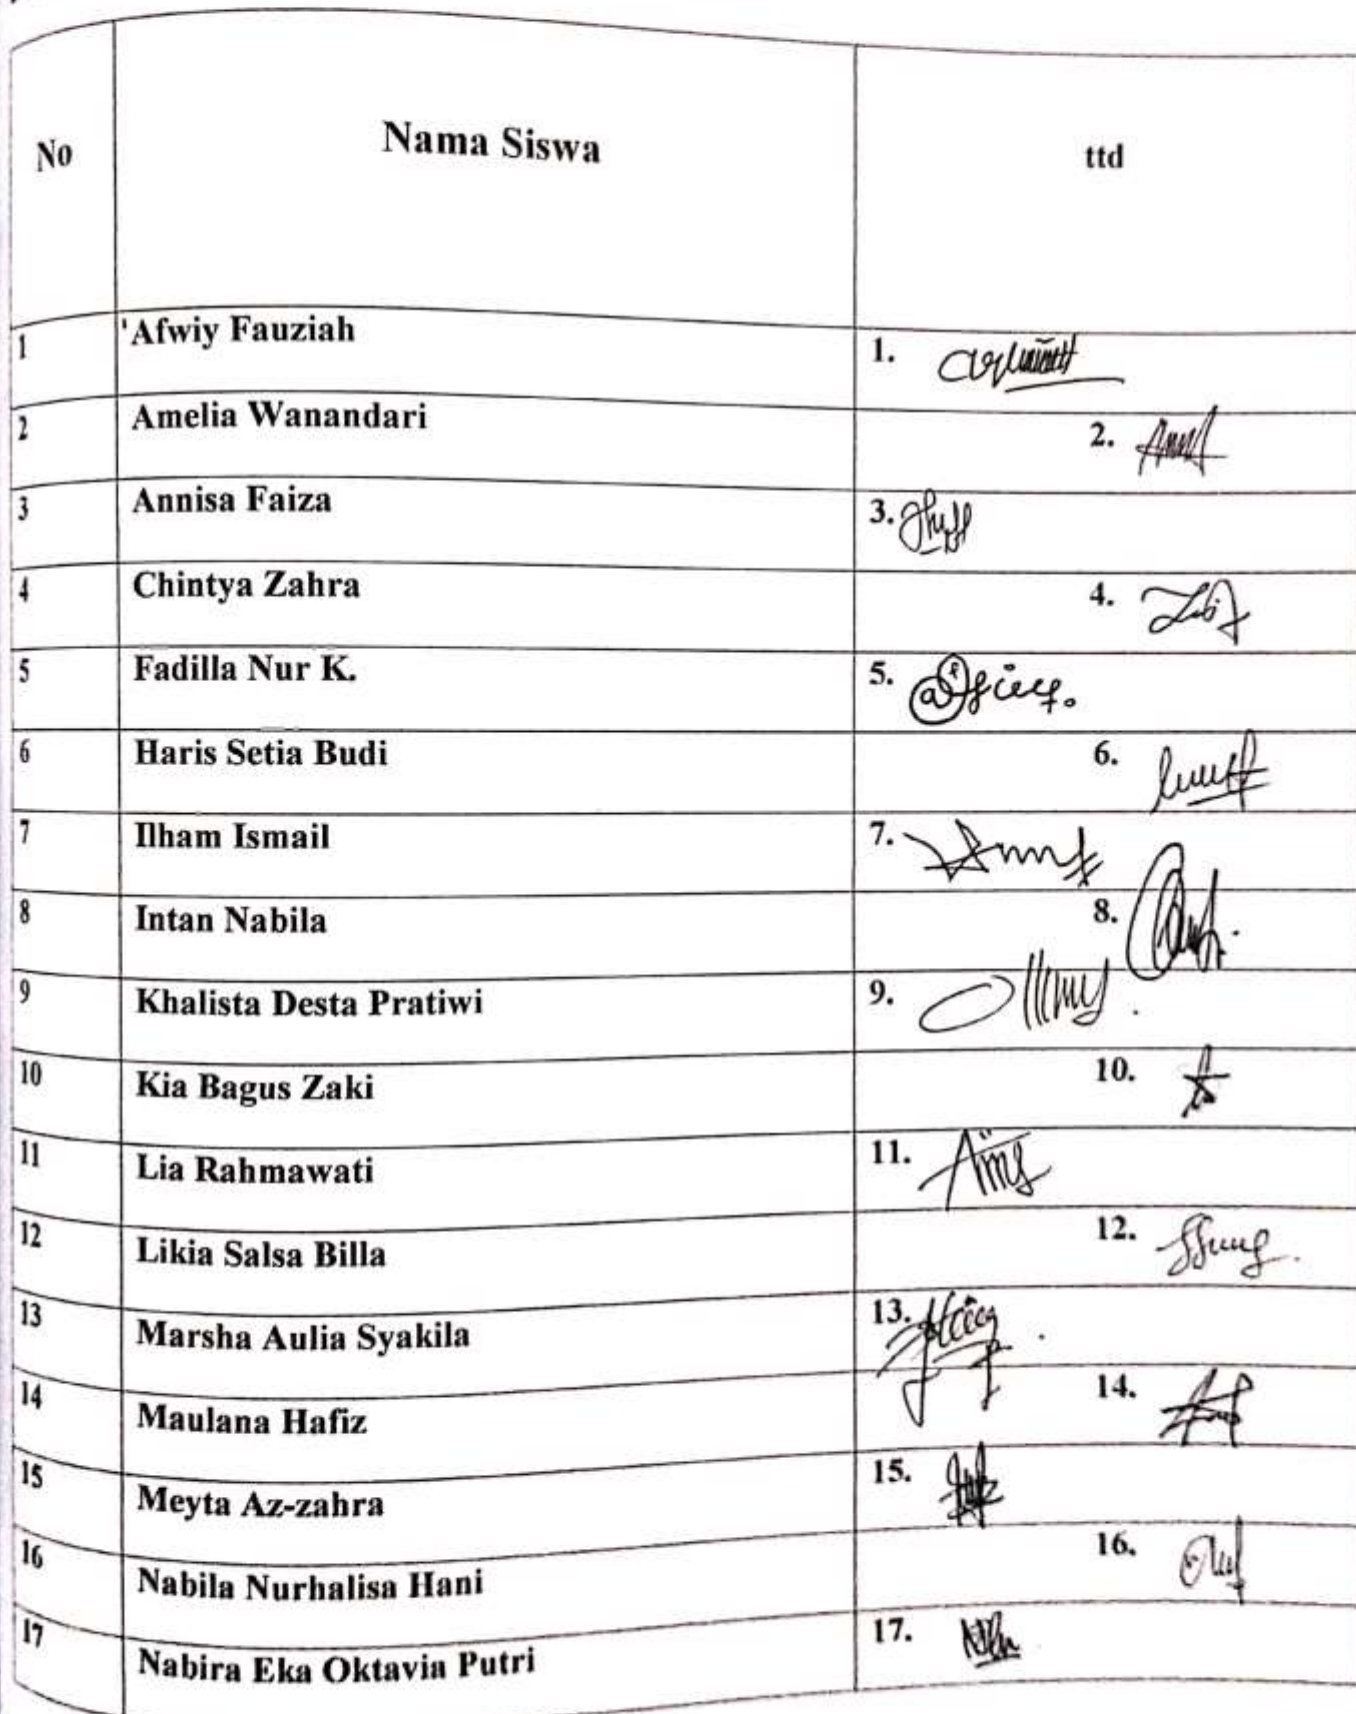 No Nama Siswa ttd
1 'Afwiy Fauziah 1.
2 Amelia Wanandari 2.
3 Annisa Faiza 3.
4 Chintya Zahra 4.
5 Fadilla Nur K. 5.
6 Haris Setia Budi 6.
7 Ilham Ismail 7.
8 Intan Nabila 8.
9 Khalista Desta Pratiwi 9.
10 Kia Bagus Zaki 10.
11 Lia Rahmawati 11.
12 Likia Salsa Billa 12.
13 Marsha Aulia Syakila 13.
14 Maulana Hafiz 14.
15 Meyta Az-zahra 15.
16 Nabila Nurhalisa Hani 16.
17 Nabira Eka Oktavia Putri 17.